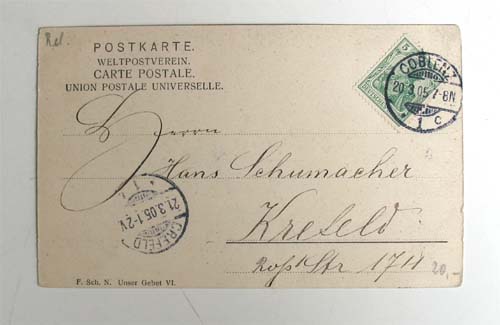 Rel.
POSTKARTE.
WELTPOSTVEREIN.
CARTE POSTALE.
UNION POSTALE UNIVERSELLE.
COBLENZ
20.3.05.7-8N
1 c
Herrn
Hans Schumacher
Krefeld
Roßstr 174
20,-
CREFELD
21.3.05.1-2V
F. Sch. N. Unser Gebet VI.